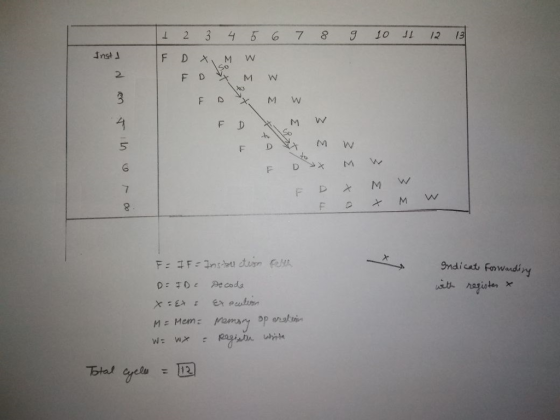 1 2 3 4 5 6 7 8 9 10 11 12 13
Inst 1 F D X M W
2 F D X M W
3 F D X M W
4 F D X M W
5 F D X M W
6 F D X M W
7 F D X M W
8 F D X M W
F = IF = Instruction Fetch
D = ID = Decode
X = Ex = Execution
M = Mem = Memory operation
W = WX = Register write
X
Indicat Forwarding
with register X
Total cycles = 12